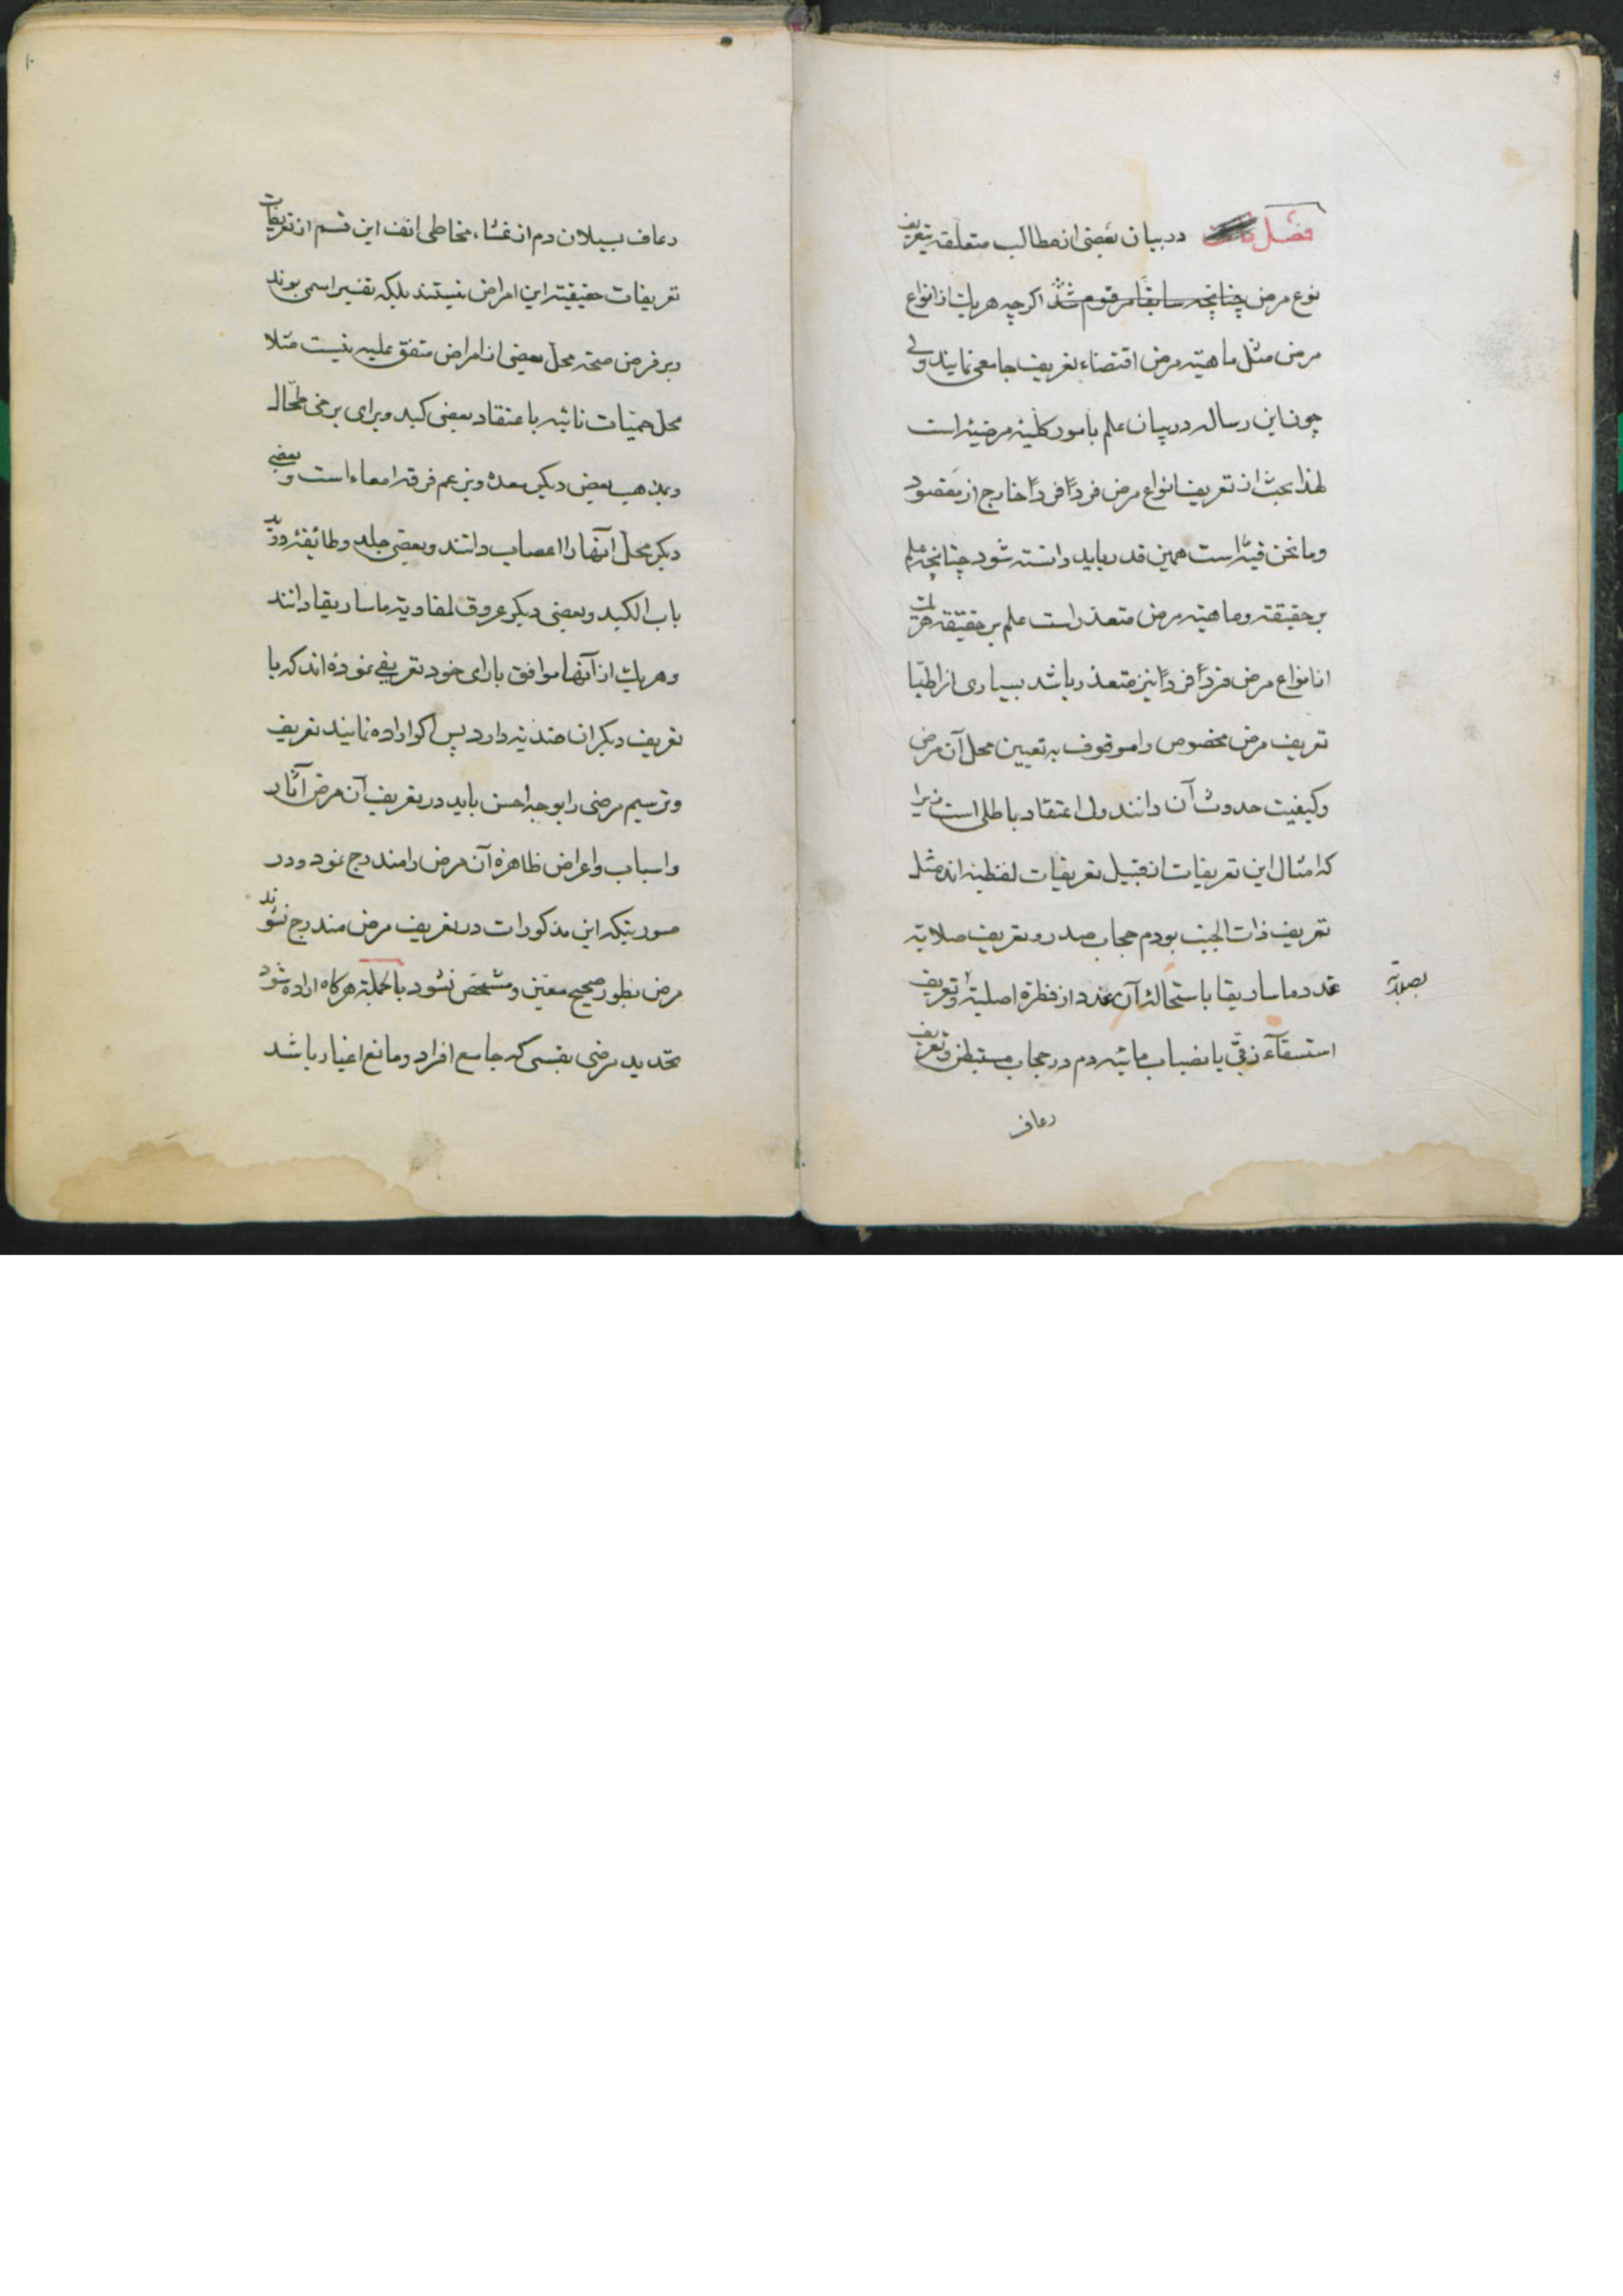 ۹
فصل در بیان بعضی از مطالب متعلقه بتعریف
نوع مرض چنانچه سابقا مرقوم شد اکرچه هریك از انواع
مرض مثل ماهیته مرض اقتضاء تعریف جامعی نمایند ولی
چون این رساله در بیان علم بامور کلیّه مرضیّه است
لهذا بحث از تعریف انواع مرض فرداً فرداً خارج از مقصود
وما نحن فیه است همین قدر باید دانسته شود چنانچه علم
بر حقیقته وماهیته مرض متعذر است علم بر حقیقته هریك
از انواع مرض فرداً فرداً نیز متعذر باشد بسیاری از اطبّا
تعریف مرض مخصوص را موقوف به تعیین محل آن مرض
وکیفیت حدوث آن دانند ولی اعتقاد باطلی است زیرا
که امثال این تعریفات از قبیل تعریفات لفظیّه اند مثل
تعریف ذات الجنب بورم حجاب صدر و تعریف صلابته
بصلابته
غدد ماساریقا باستحالۀ آن غدد از فطرة اصلیّه و تعریف
استسقآء زقّی بانصباب مائیّه دم در حجاب مستبطن و تعریف
رعاف
۱۰
رعاف بسیلان دم از غشاء مخاطی انف این قسم از تعریفات
تعریفات حقیقیّه این امراض نیستند بلکه تفسیر اسمی بوند
وبر فرض صحّه محل بعضی از امراض متفق علیه نیست مثلا
محل حمیّات نائبه باعتقاد بعضی کبد وبرای برخی طحال
وبمذهب بعض دیکر معده وبزعم فرقه امعاء است و بعضی
دیکر محل آنها را اعصاب دانند وبعضی جلد وطائفۀ ورید
باب الکبد وبعضی دیکر عروق لمفاویّه ماساریقا دانند
وهریك از آنها موافق بارای خود تعریفی نموده اند که با
تعریف دیکران ضدیّه دارد پس اکر اراده نمایند تعریف
وترسیم مرضی را بوجه احسن باید در تعریف آن مرض آثار
واسباب واعراض ظاهرۀ آن مرض را مندرج نمود ودر
صورتیکه این مذکورات در تعریف مرض مندرج نشوند
مرض بطور صحیح معیّن ومشخص نشود بالجملة هرکاه اراده شود
تحدید مرضی بقسمی که جامع افراد ومانع اغیار باشد